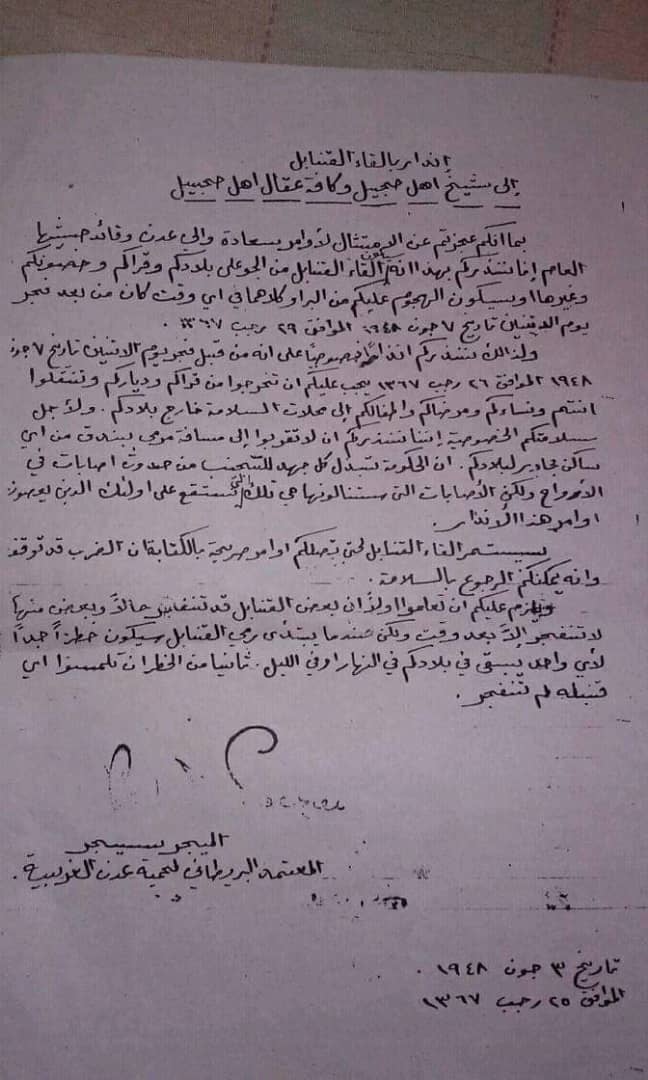 انذار بالقاء القنابل
إلى شيخ اهل حجيل وكافة عقال اهل حجيل
بما انكم عجزتم عن الإمتثال لأوامر سعادة والي عدن وقائد جيشها
العام إننا ننذركم بهذا انه سيكون القاء القنابل من الجو على بلادكم وقراكم وحصونكم
وغيرها او سيكون الهجوم عليكم من البر او كلاهما في اي وقت كان من بعد فجر
يوم الاثنين تاريخ ٧ جون ١٩٤٨ الموافق ٢٩ رجب ١٣٦٧ .
ولذالك ننذركم انذاراً خصوصياً على انه من قبل فجر يوم الاثنين تاريخ ٧ جون
١٩٤٨ الموافق ٢٦ رجب ١٣٦٧ يجب عليكم ان تخرجوا من قراكم ودياركم وتنتقلوا
انتم ونساءكم ومرضاكم واطفالكم إلى محلات السلامة خارج بلادكم . ولأجل
سلامتكم الخصوصية إننا ننذركم ان لا تقربوا إلى مسافة مرمى بندق من أي
ساكن مجاور لبلادكم . ان الحكومة تبذل كل جهد للتجنب من حدوث اصابات في
الأرواح ولكن الأصابات التي ستنالونها هي تلك التي ستقع على اولئك الذين يعصون
اوامر هذا الأنذار .
سيستمر القاء القنابل لحتى تصلكم اوامر صريحة بالكتابة ان الضرب قد توقف
وانه يمكنكم الرجوع بالسلامة .
ويلزم عليكم ان تعلموا اولاً ان بعض القنابل قد تنفجر حالاً وبعض منها
لا تنفجر الاّ بعد وقت ولكن عندما يبتدى رمي القنابل سيكون خطراً جداً
لأي واحد يبقى في بلادكم في النهار او في الليل . ثانيا من الخطر ان تلمسوا اي
قنبله لم تنفجر .
الميجر سيجر
المعتمد البريطاني لمحمية عدن الغربية .
تاريخ ٣ جون ١٩٤٨ .
الموافق ٢٥ رجب ١٣٦٧